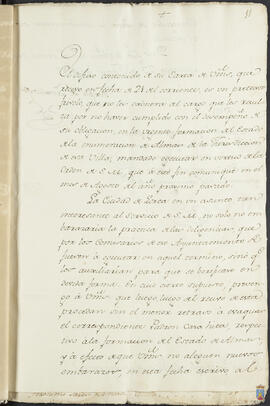 11
El difuso contenido de su Carta de Vms. que
recivo en fecha de 21 del corriente, es un pretexto
frivolo, que no les exonera al cargo que les resulta
por no haver cumplido con el desempeño de
su obligacion, en la vigente formacion del Estado
de la enumeracion de Almas de la Jurisdiccion
de esa Villa, mandado executar en virtud de la
orden de S.M. que a este fin comuniqué en el
mes de Agosto del año proximo pasado.
La Ciudad de Lorca en un asunto tan
interesante al Servicio de S.M. no solo no em-
barazaria la practica de las diligencias, que
por los Comisarios de ese Ayuntamiento se
fueron a executar en aquel termino, sino q.e
los auxiliarian para que se hiciesen en
devida forma. En cuio cierto supuesto, preven-
go a Vms. que luego, luego al recivo de esta
procedan sin el menor retraso a evaquar
el correspondiente Padron Carta Cuenta, respec-
tivo a la formacion del Estado de Almas,
y a efecto de que Vms. no aleguen nuevos
embarazos, en esta fecha escrivo al